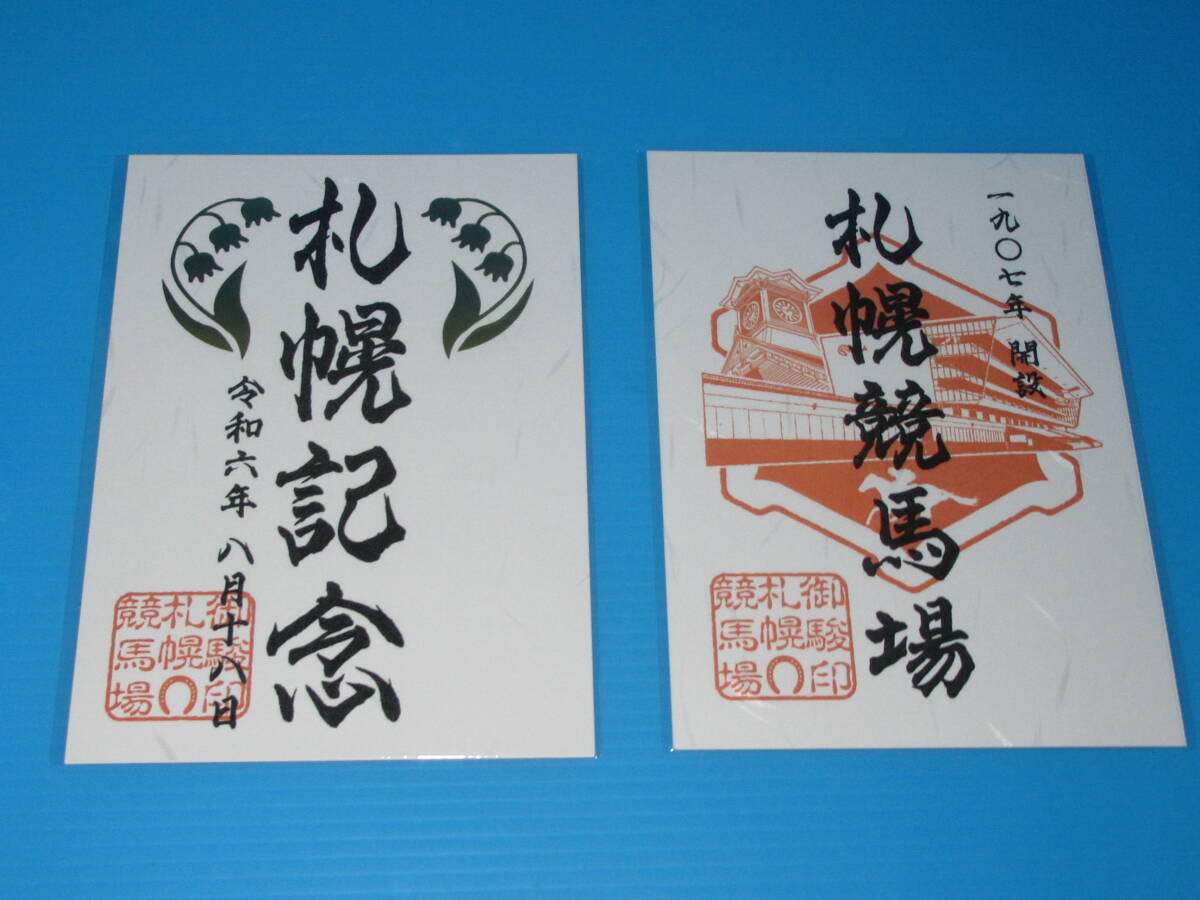 札幌記念
令和六年 八月十八日
御駿印
札幌
競馬場
一九〇七年 開設
札幌競馬場
御駿印
札幌
競馬場